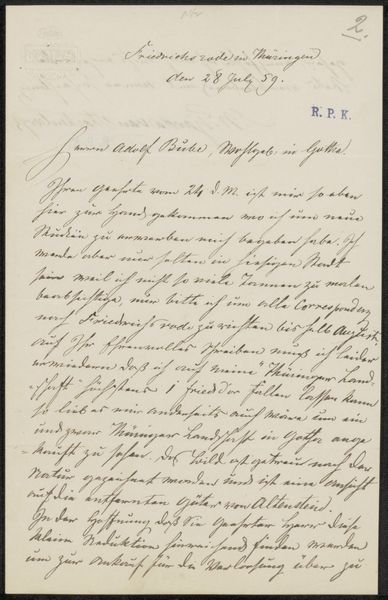 2.
Friedrichsrode in Thüringen
den 28 July 59.
R. P. K.
Herrn Adolf Bube, Wohlgeb: in Gotha!
Ihren geehrte vom 24 d. M. ist mir so eben
hier zur Hand gekommen wo ich um neue
Studien zu erwerben mich begeben habe. Ich
werde aber nur selten in hiesigen Stadt
sein weil ich nicht so viele Tannen zu malen
beabsichtige, nun bitte ich um alle Correspondenz
nach Friedrichsrode zu richten bis halb August.
auf Ihr Ehrenvolles Schreiben muß ich leider
erwiedern daß ich auf meine "Thüringer Land-
schaft" höchstens 1 fallen lassen kann
so lieb es mir anderseits auch wäre um ein
und zwar Thüringer Landschaft in Gotha ange
-kauft zu sehen. Das Bild ist getreu nach der
Natur gezeichnet worden und ist eine Ansicht
auf die entfernten Güter von Altenstein.
In der Hoffnung daß Sie Geehrter Herr diese
kleine Reduktion hinreichend finden werden
um zur Ankauf für die Verloosung über zu